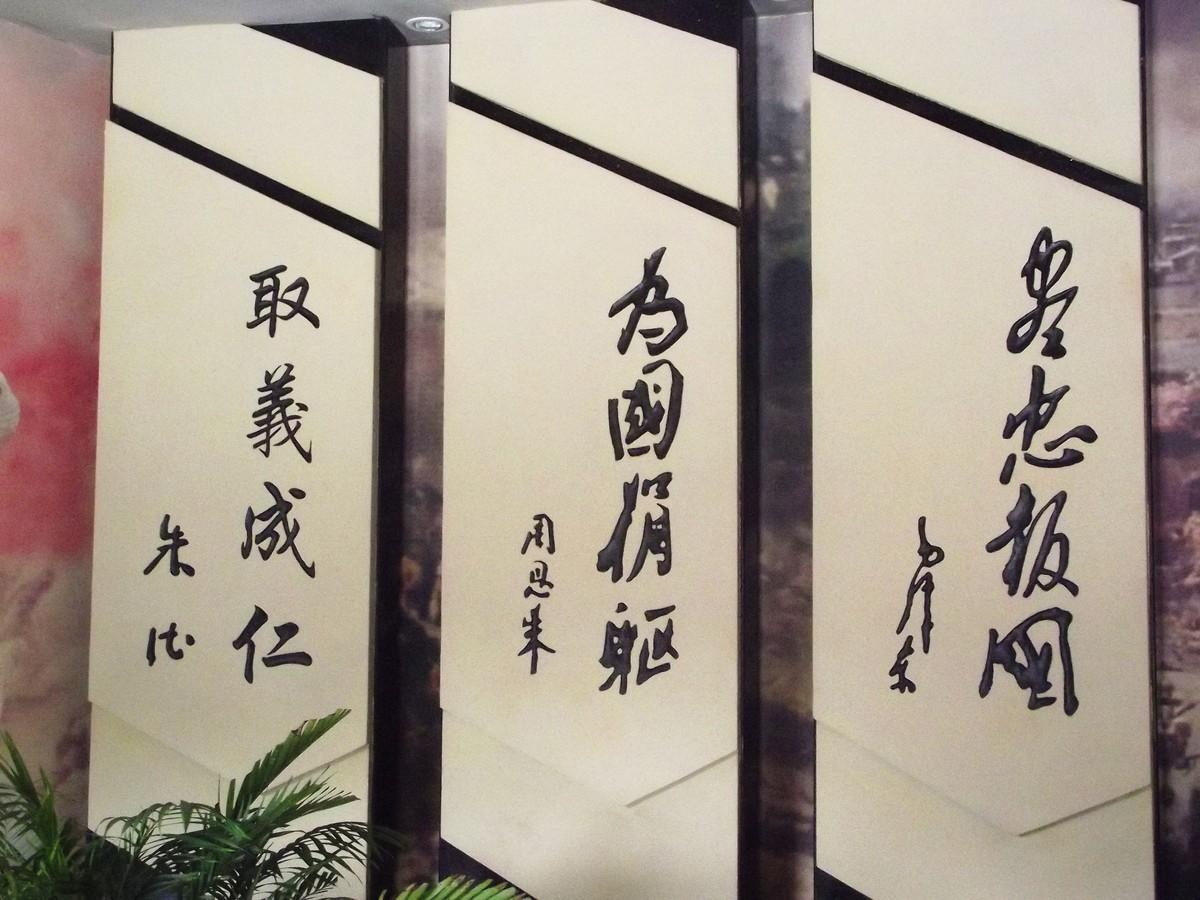 盡忠報國
毛澤东
为國捐軀
周恩来
取義成仁
朱德